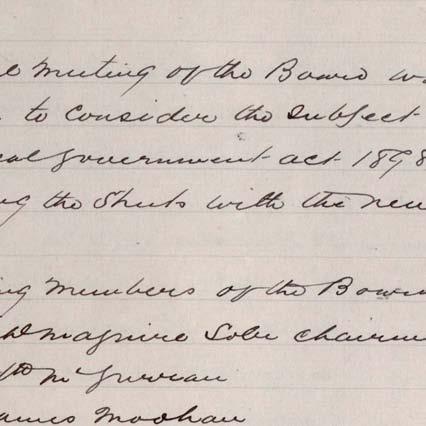 Meeting of the Board
to Consider the Subject
Government act 1898
the Shubs with the new
Members of the Board
Maguire Solr chairm
McGurran
James Moohan